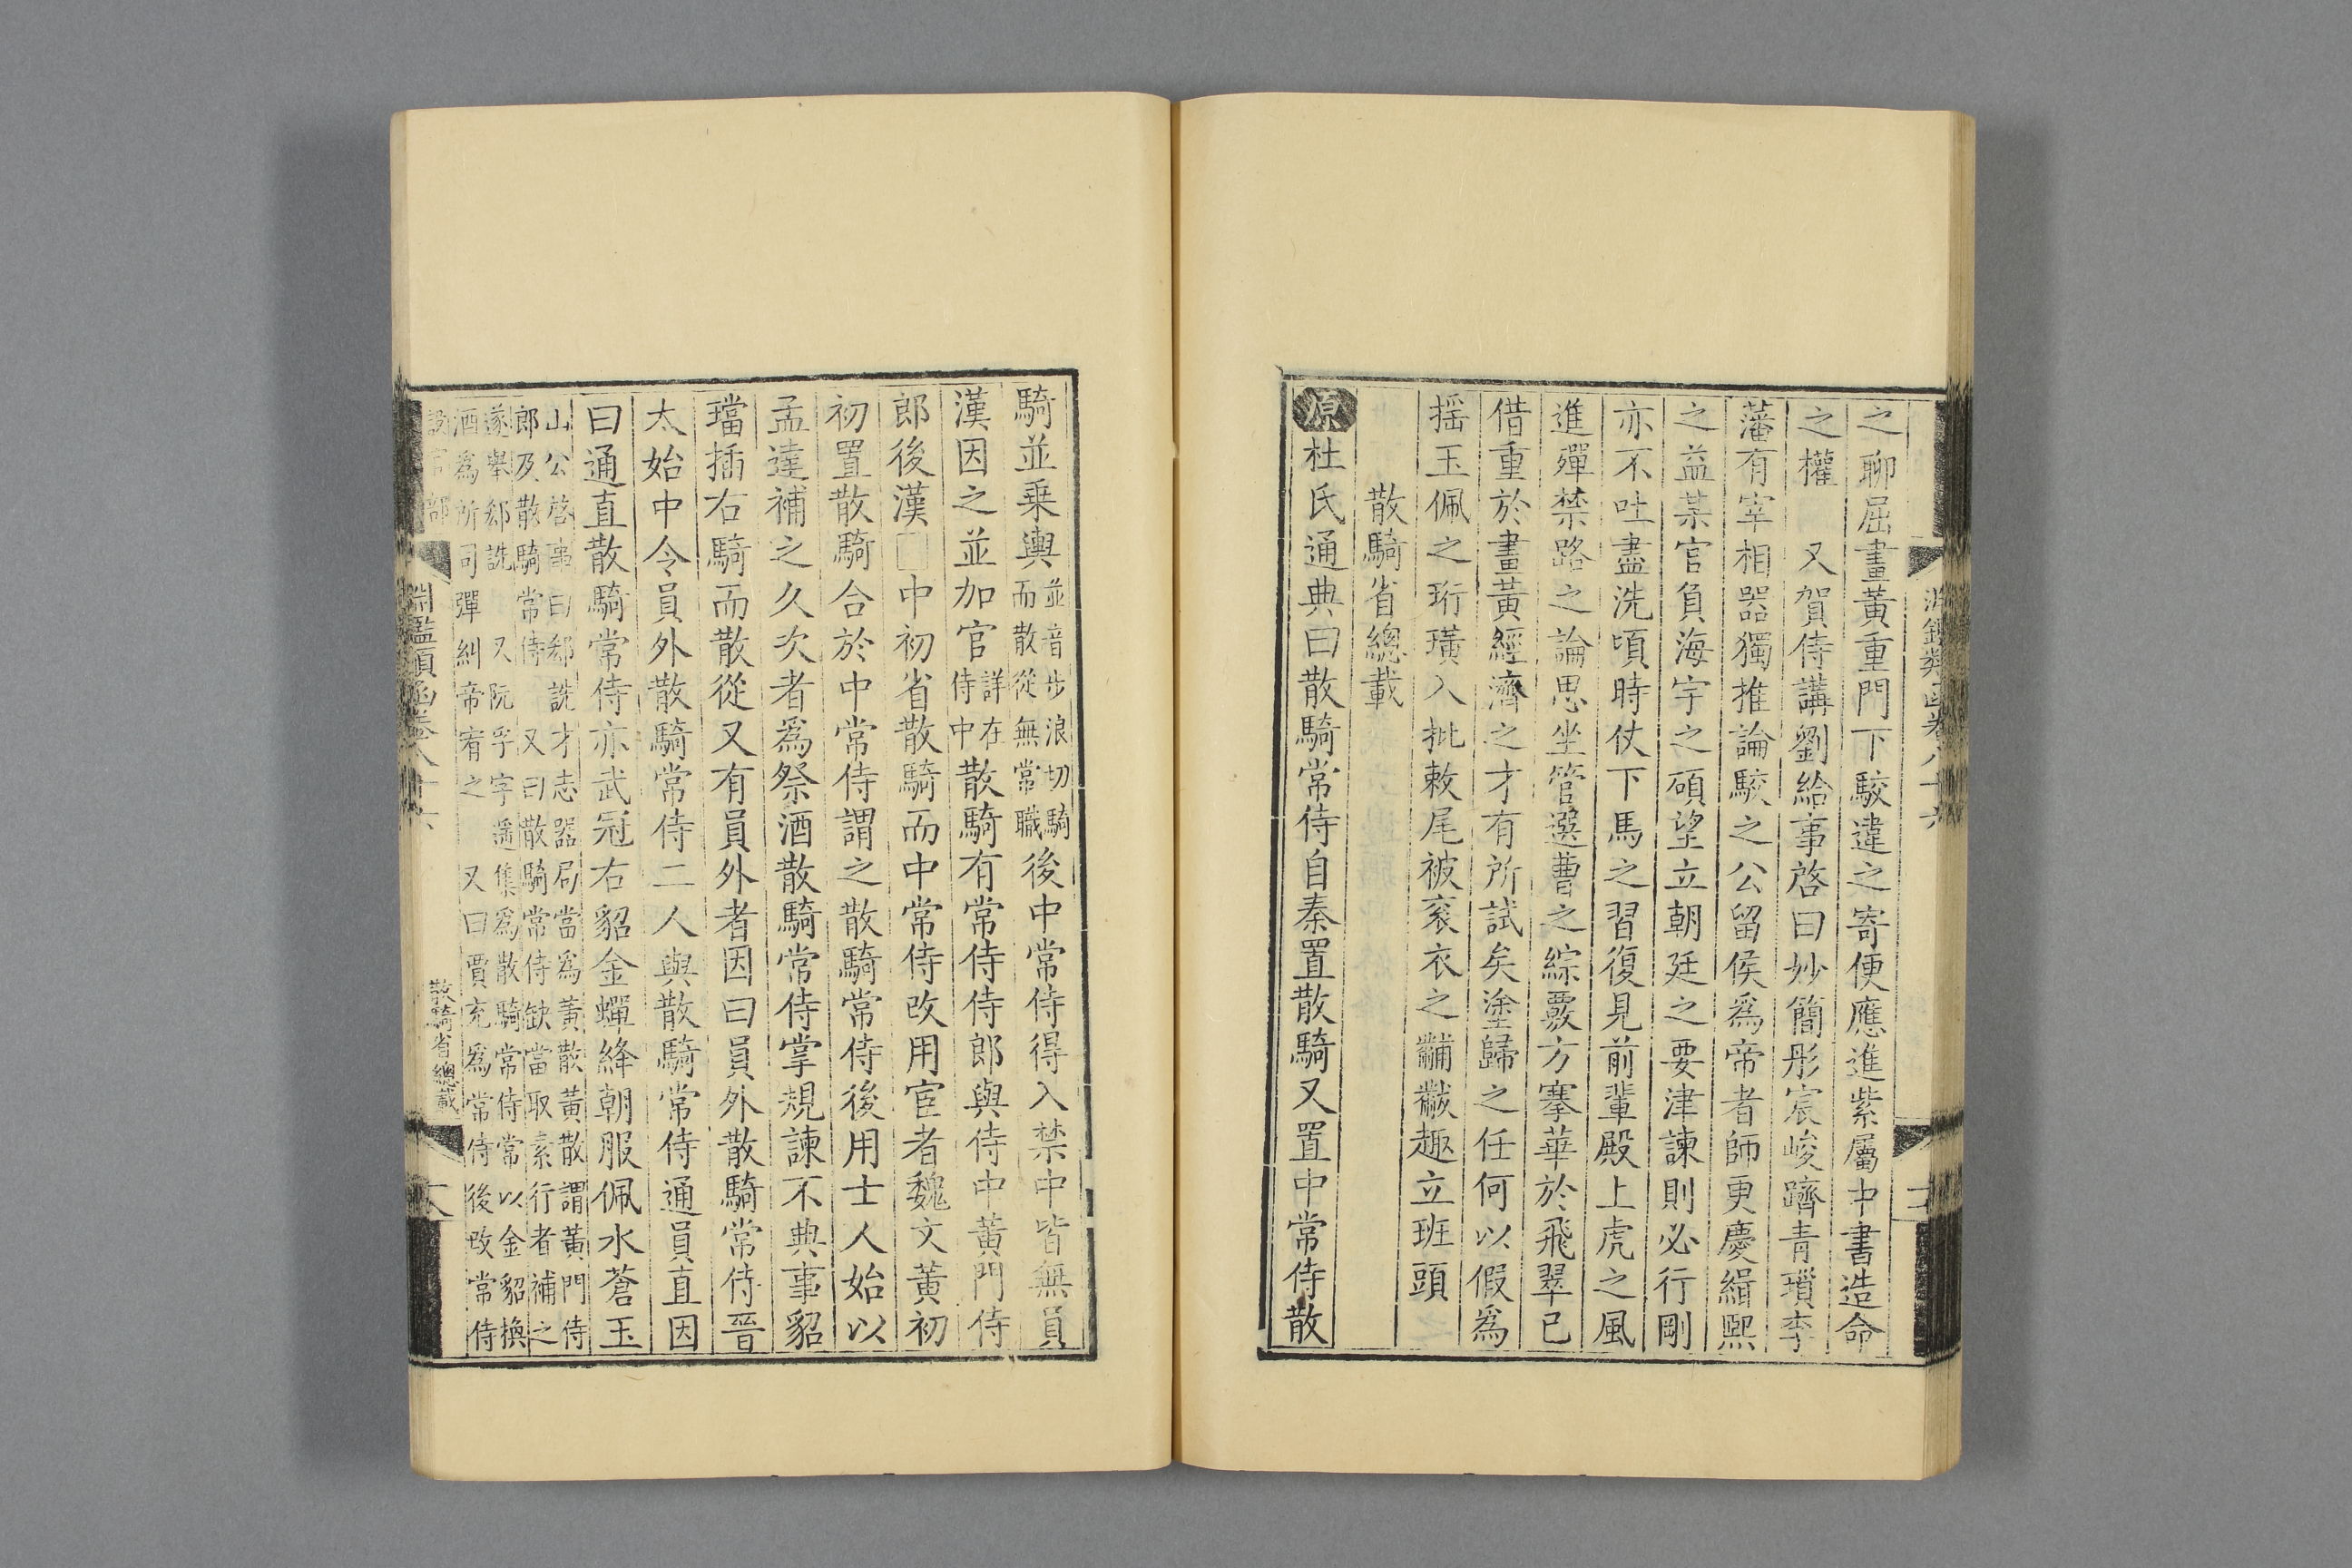 之聊屈畫黃重門下駮違之寄便應進紫屬中書造命
之權　又賀侍講劉給事啓曰妙簡彤宸峻躋青瑣李
藩有宰相器獨推論駮之公留侯爲帝者師更慶緝熙
之益某官負海宇之碩望立朝廷之要津諫則必行剛
亦不吐盡洗頃時仗下馬之習復見前輩殿上虎之風
進殫禁路之論思坐管選曹之綜覈方搴華於飛翠已
借重於畫黃經濟之才有所試矣塗歸之任何以假爲
搖玉佩之珩璜入批敕尾被袞衣之黼黻趣立班頭
散騎省總載
原杜氏通典曰散騎常侍自秦置散騎又置中常侍散
騎並乘輿並音步浪切騎而散從無常職後中常侍得入禁中皆無員
漢因之並加官詳在侍中散騎有常侍侍郎與侍中黃門侍
郎後漢□中初省散騎而中常侍改用宦者魏文黃初
初置散騎合於中常侍謂之散騎常侍後用士人始以
孟達補之久次者爲祭酒散騎常侍掌規諫不典事貂
璫插右騎而散從又有員外者因曰員外散騎常侍晉
太始中令員外散騎常侍二人與散騎常侍通員直因
曰通直散騎常侍亦武冠右貂金蟬絳朝服佩水蒼玉
山公啓事曰郄詵才志器局當爲黃散黃散謂黃門侍
郎及散騎常侍　又曰散騎常侍缺當取素行者補之
遂舉郄詵　又阮孚字遥集爲散騎常侍常以金貂換
酒爲所司彈糾帝宥之　又曰賈充爲常侍後改常侍
設官部
淵鑑類函卷八十六
散騎省總載